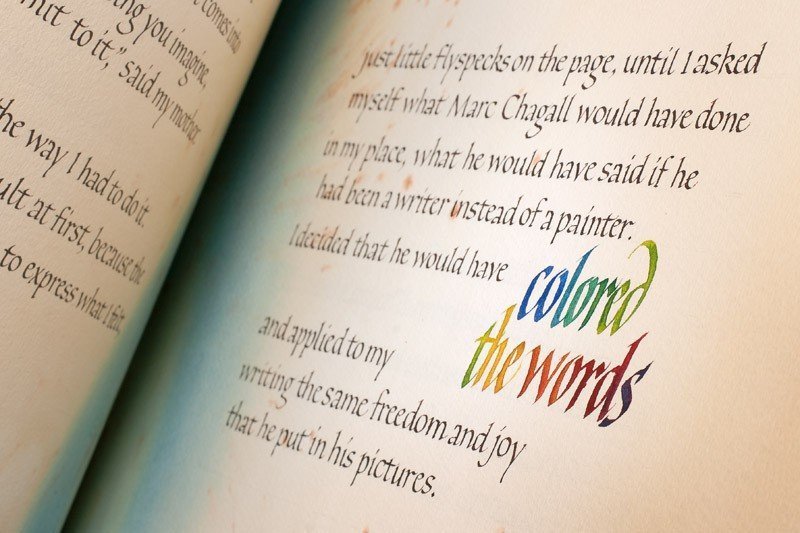 comes into
ng you imagine,
mit to it," said my mother.
the way I had to do it.
ult at first, because the
to express what I felt,
just little flyspecks on the page, until I asked
myself what Marc Chagall would have done
in my place, what he would have said if he
had been a writer instead of a painter.
I decided that he would have colored
the words
and applied to my
writing the same freedom and joy
that he put in his pictures.